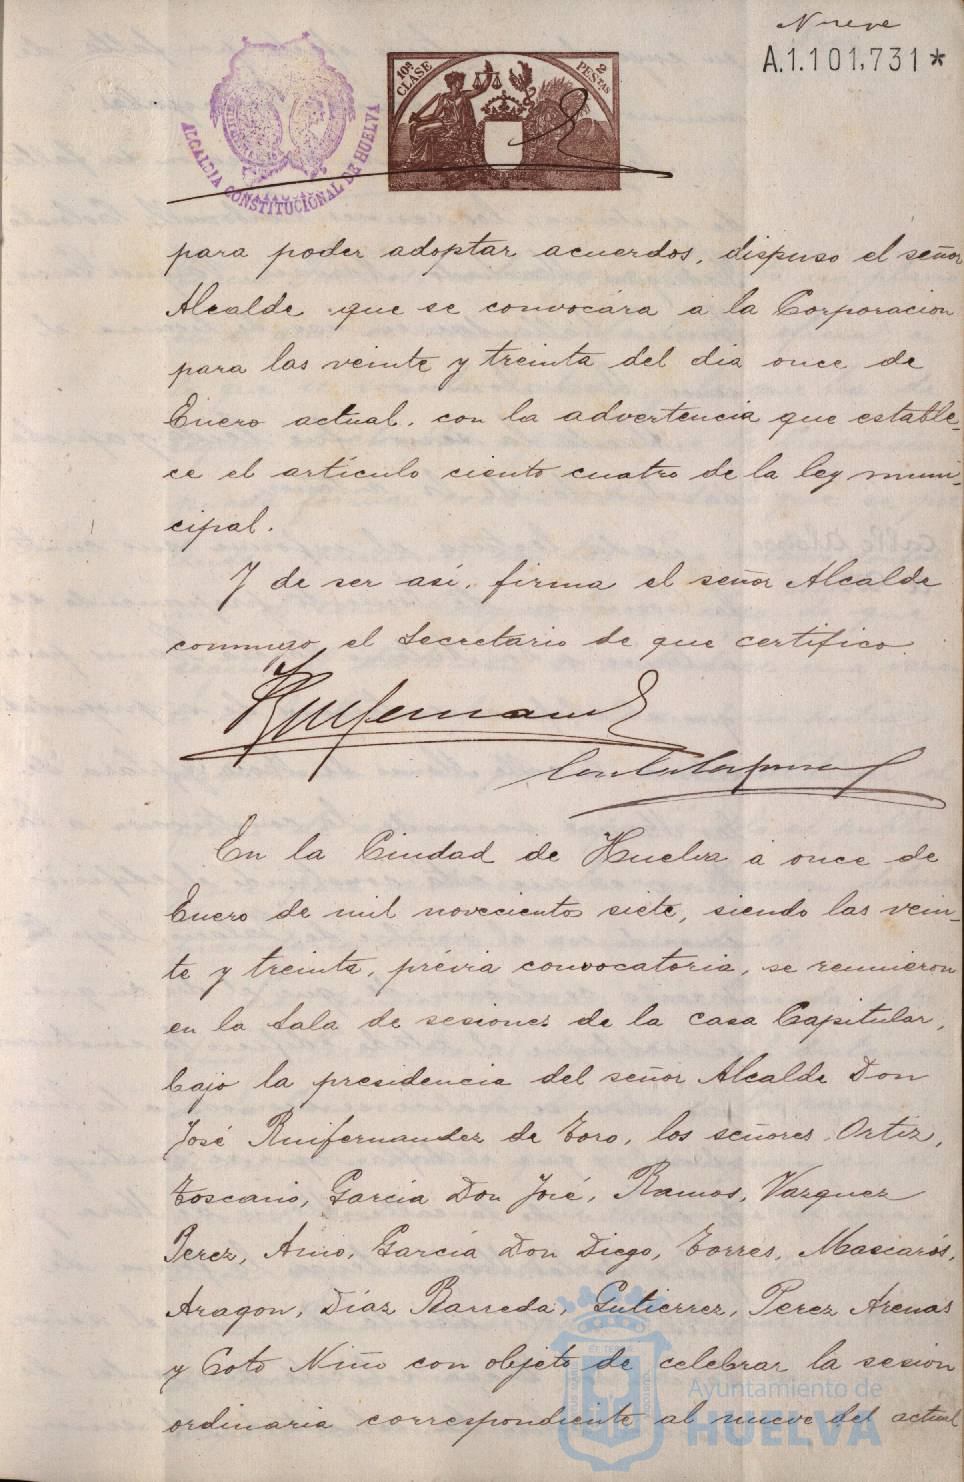 Nueve
A.1.101,731*
10ª CLASE
2 PESTAS
ALCALDIA CONSTITUCIONAL DE HUELVA
para poder adoptar acuerdos, dispuso el señor
Alcalde que se convocára a la Corporacion
para las veinte y treinta del dia once de
Enero actual, con la advertencia que estable-
ce el artículo ciento cuatro de la ley muni-
cipal.
Y de ser así, firma el señor Alcalde
conmigo, el Secretario de que certifico.
En la Ciudad de Huelva á once de
Enero de mil novecientos siete, siendo las vein-
te y treinta, prévia convocatoria, se reunieron
en la Sala de sesiones de la casa Capitular,
bajo la presidencia del señor Alcalde Don
José Ruifernandez de Toro, los señores Ortiz,
Toscano, Garcia Don José, Ramos, Vazquez
Perez, Amo, García Don Diego, Torres, Mascarós,
Aragon, Díaz Barreda, Gutierrez, Perez Arenas
y Coto Niño con objeto de celebrar la sesion
ordinaria correspondiente al nueve del actual
Ayuntamiento de
HUELVA